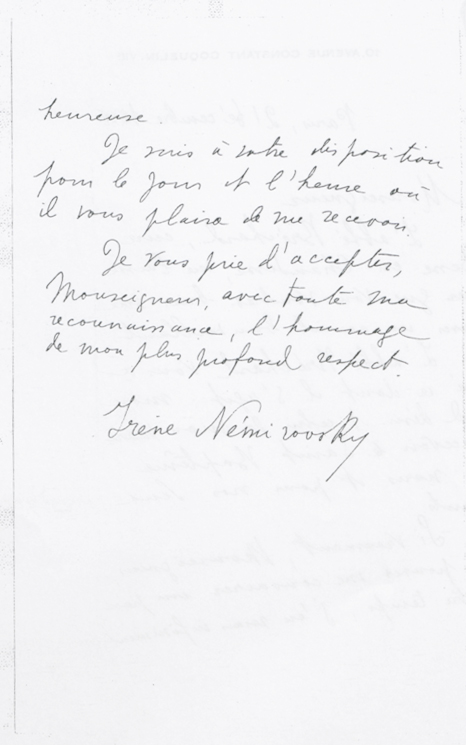 heureuse.
Je suis à votre disposition
pour le jour et l'heure où
il vous plaira de me recevoir.
Je vous prie d'accepter,
Monseigneur, avec toute ma
reconnaissance, l'hommage
de mon plus profond respect.
Irène Némirovsky